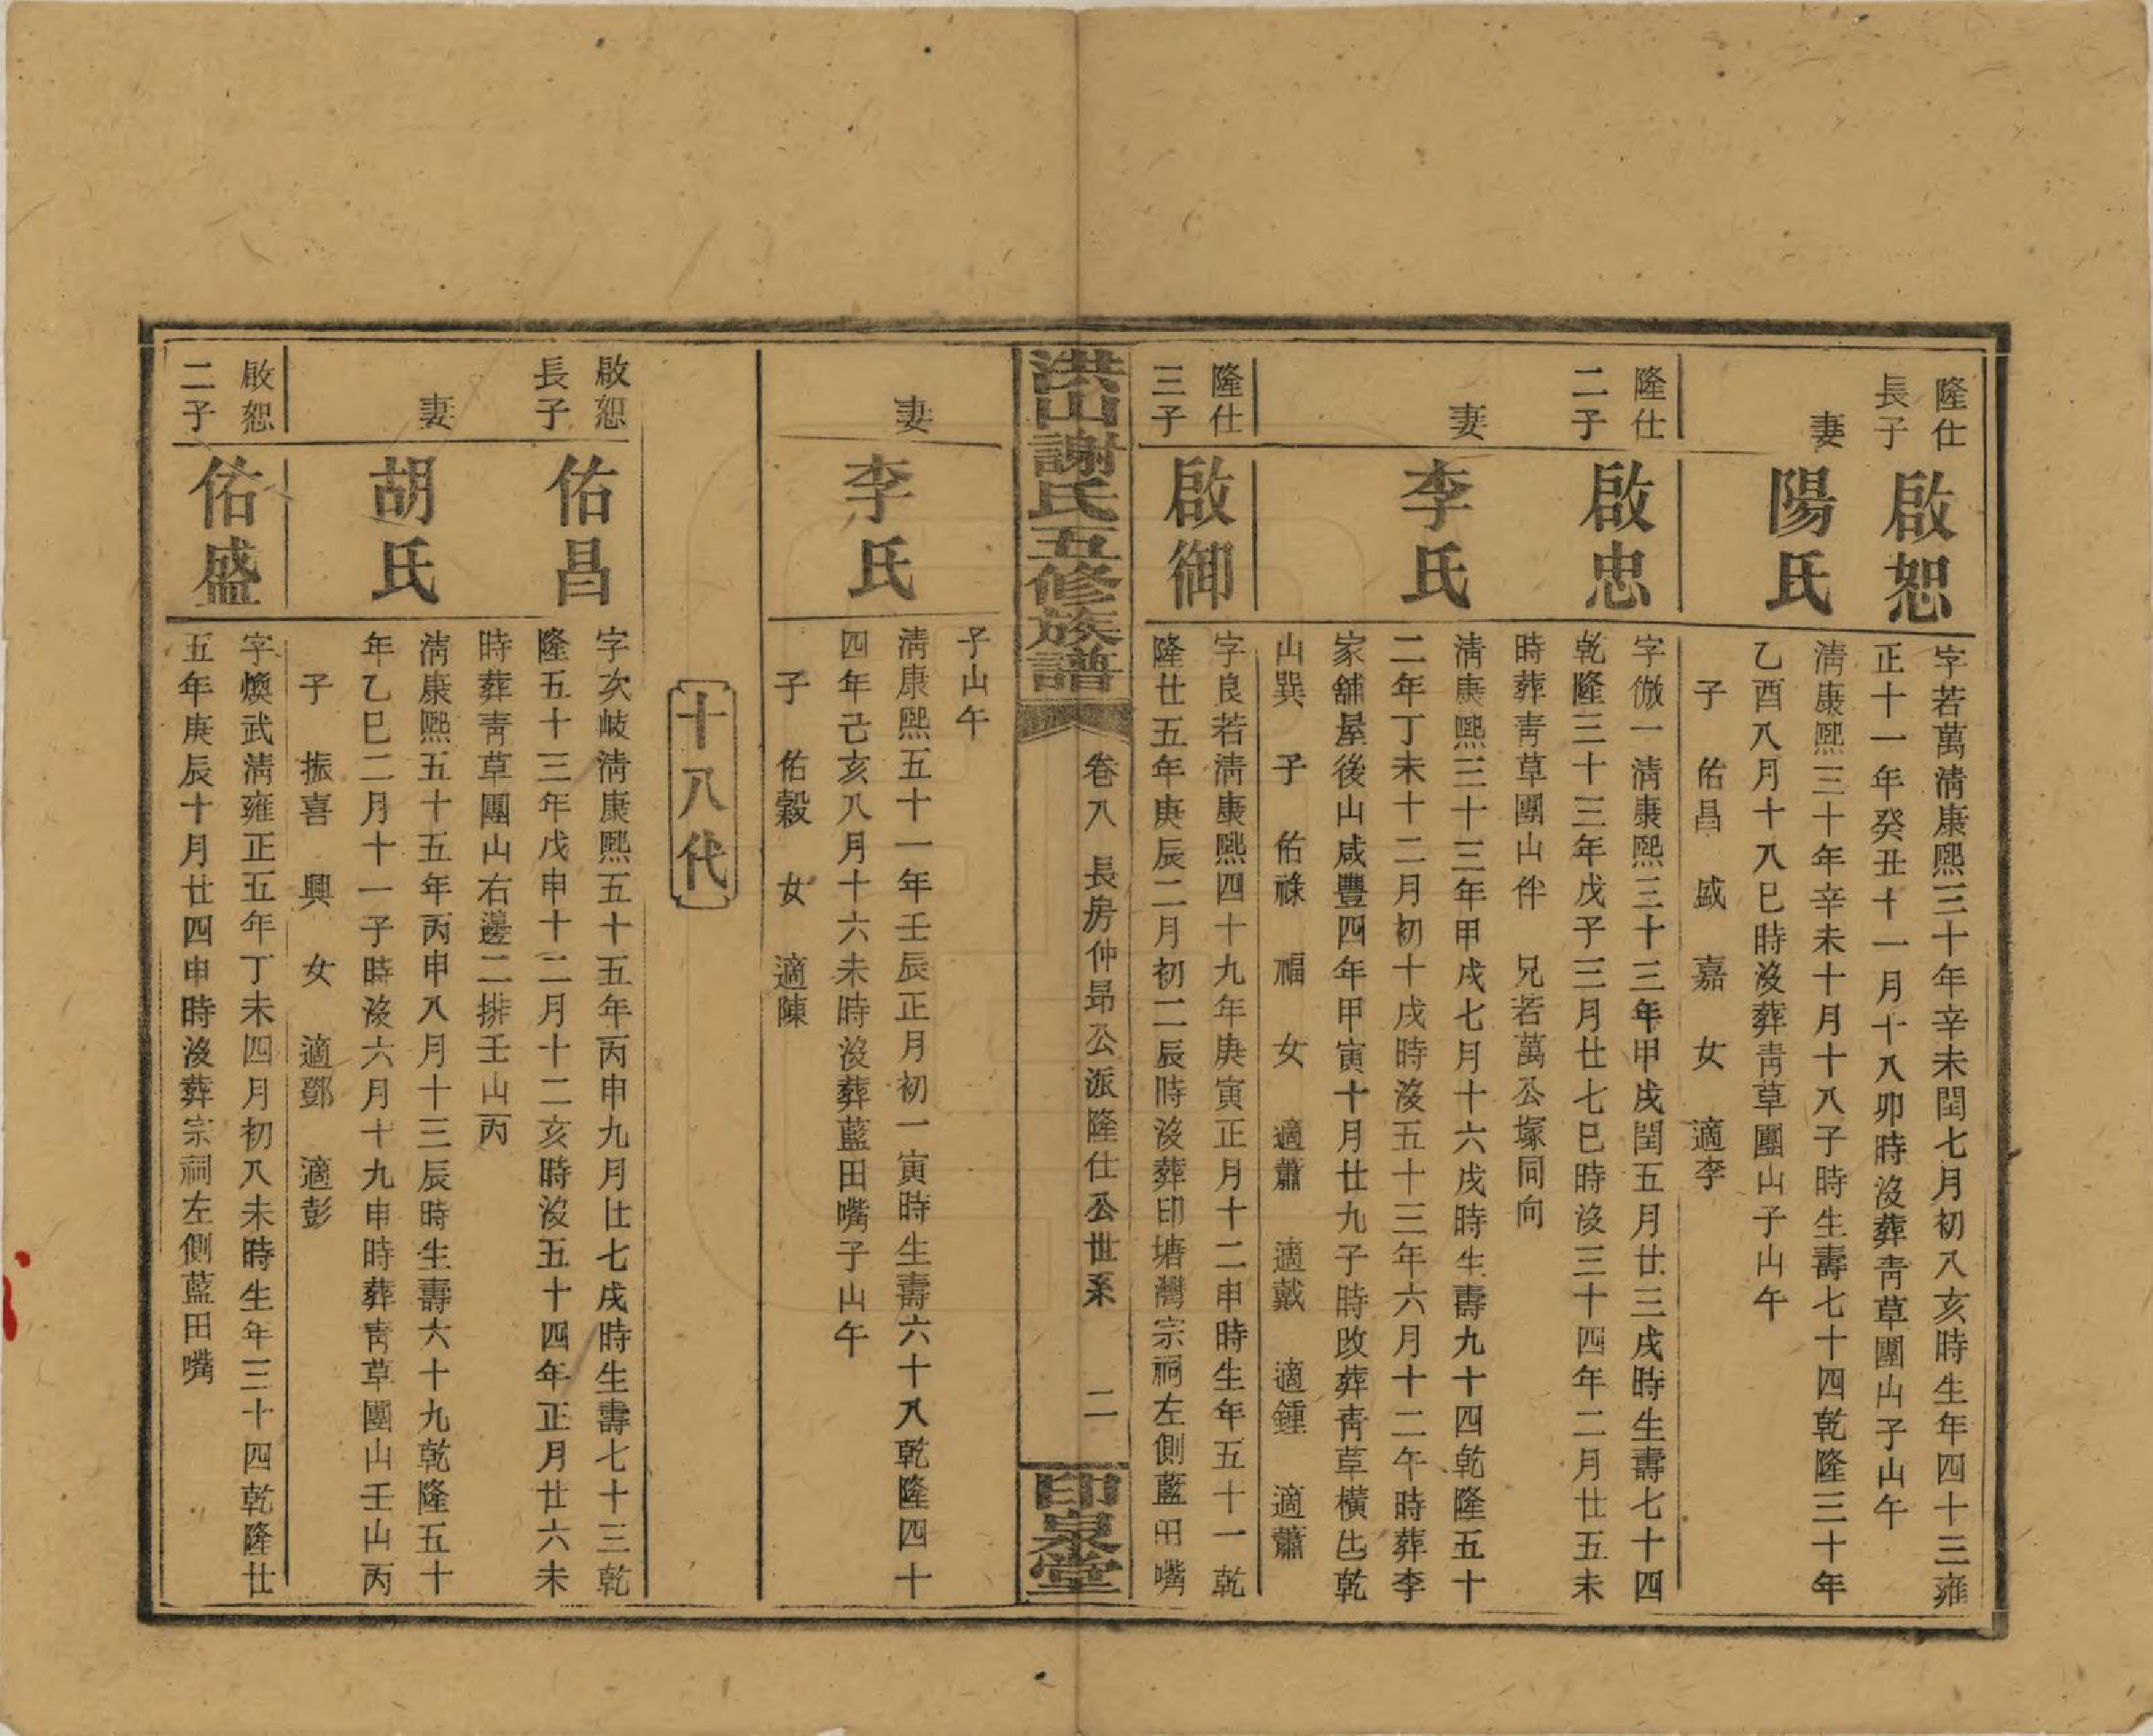 隆仕
長子
啟恕
字若萬淸康熙三十年辛未閏七月初八亥時生年四十三雍
正十一年癸丑十一月十八卯時沒葬靑草團山子山午
妻
陽氏
淸康熙三十年辛未十月十八子時生壽七十四乾隆三十年
乙酉八月十八巳時沒葬靑草團山子山午
子 佑昌 盛 嘉 女 適李
隆仕
二子
啟忠
字儆一淸康熙三十三年甲戌閏五月廿三戌時生壽七十四
乾隆三十三年戊子三月廿七巳時沒三十四年二月廿五未
時葬靑草團山伴 兄若萬公塚同向
妻
李氏
淸康熙三十三年甲戌七月十六戌時生壽九十四乾隆五十
二年丁未十二月初十戌時沒五十三年六月十二午時葬李
家舖屋後山咸豐四年甲寅十月廿九子時改葬靑草橫出乾
山巽 子 佑祿 福 女 適蕭 適戴 適鍾 適蕭
隆仕
三子
啟御
字良若淸康熙四十九年庚寅正月十二申時生年五十一乾
隆廿五年庚辰二月初二辰時沒葬印塘灣宗祠左側藍田嘴
洪山謝氏五修族譜
卷八 長房仲昻公派隆仕公世系 二
印泉堂
子山午
妻
李氏
淸康熙五十一年壬辰正月初一寅時生壽六十八乾隆四十
四年己亥八月十六未時沒葬藍田嘴子山午
子 佑穀 女 適陳
十八代
啟恕
長子
佑昌
字次岐淸康熙五十五年丙申九月廿七戌時生壽七十三乾
隆五十三年戊申十二月十二亥時沒五十四年正月廿六未
時葬靑草團山右邊二排壬山丙
妻
胡氏
淸康熙五十五年丙申八月十三辰時生壽六十九乾隆五十
年乙巳二月十一子時沒六月十九申時葬靑草團山壬山丙
子 振喜 興 女 適鄧 適彭
啟恕
二子
佑盛
字煥武淸雍正五年丁未四月初八未時生年三十四乾隆廿
五年庚辰十月廿四申時沒葬宗祠左側藍田嘴